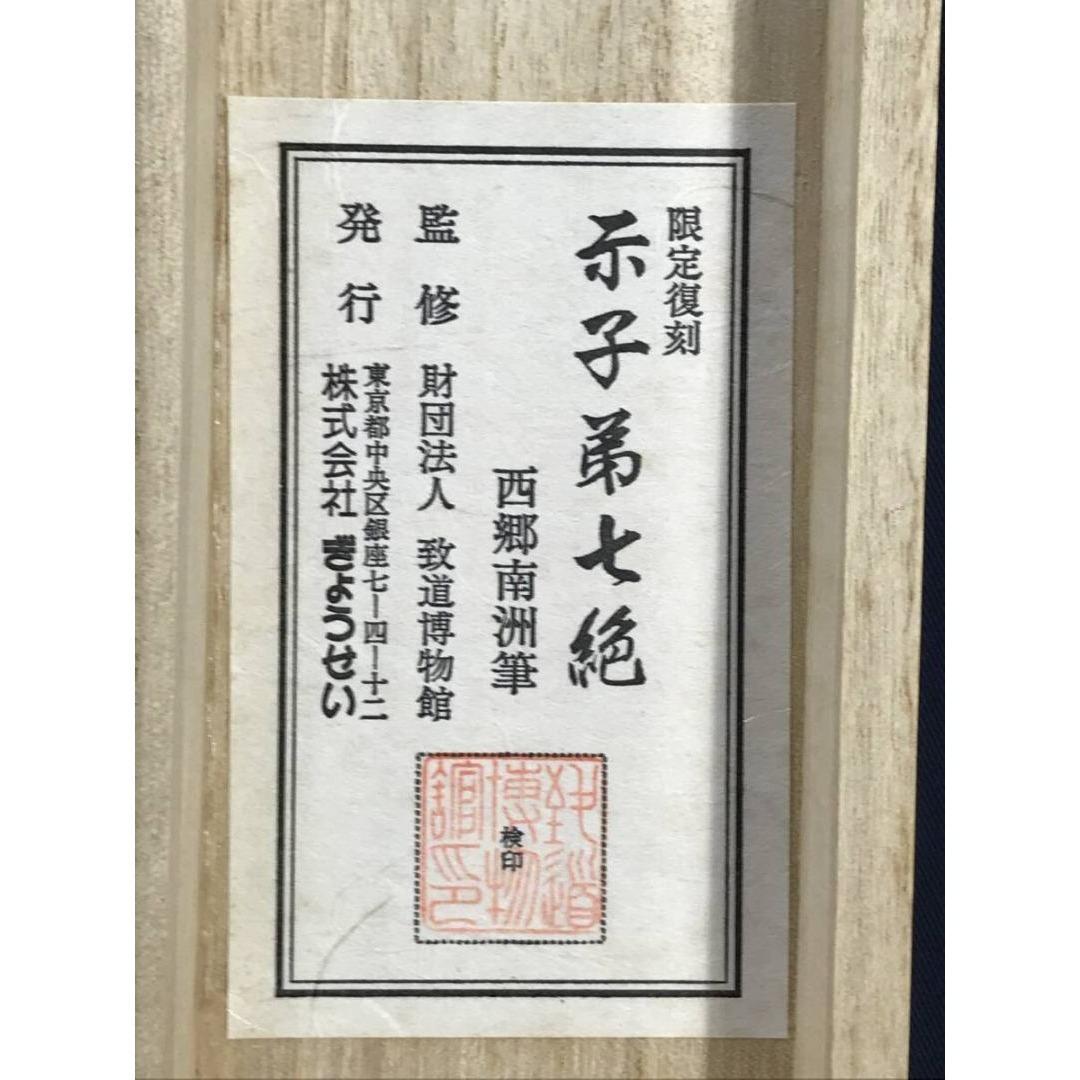 限定復刻
示子弟七絶
西郷南洲筆
監修 財団法人 致道博物館
発行 東京都中央区銀座七ー四ー十二
株式会社 ぎょうせい
検印
致道
博物
館印